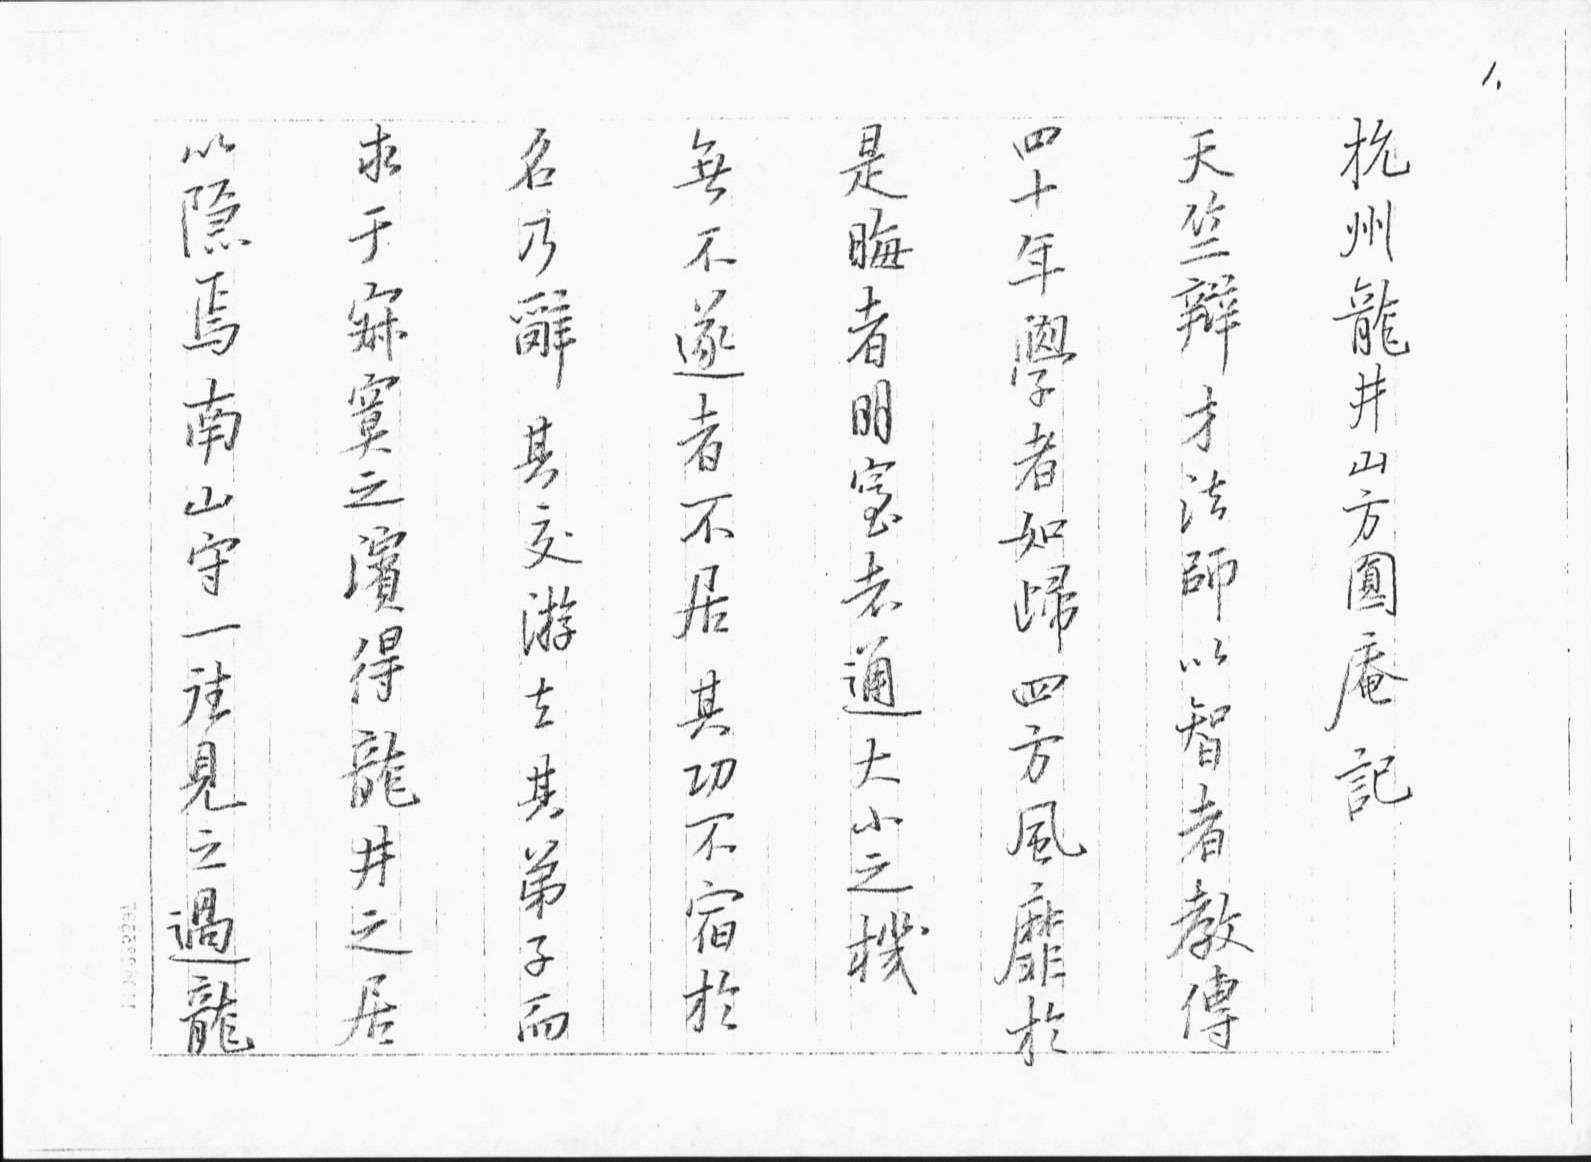 1.
杭州龍井山方圓庵記
天竺辯才法師以智者教傳
四十年學者如歸四方風靡於
是晦者明窒者通大小之機
無不遂者不居其功不宿於
名乃辭其交游去其弟子而
求于寂寞之濱得龍井之居
以隱焉南山守一往見之過龍